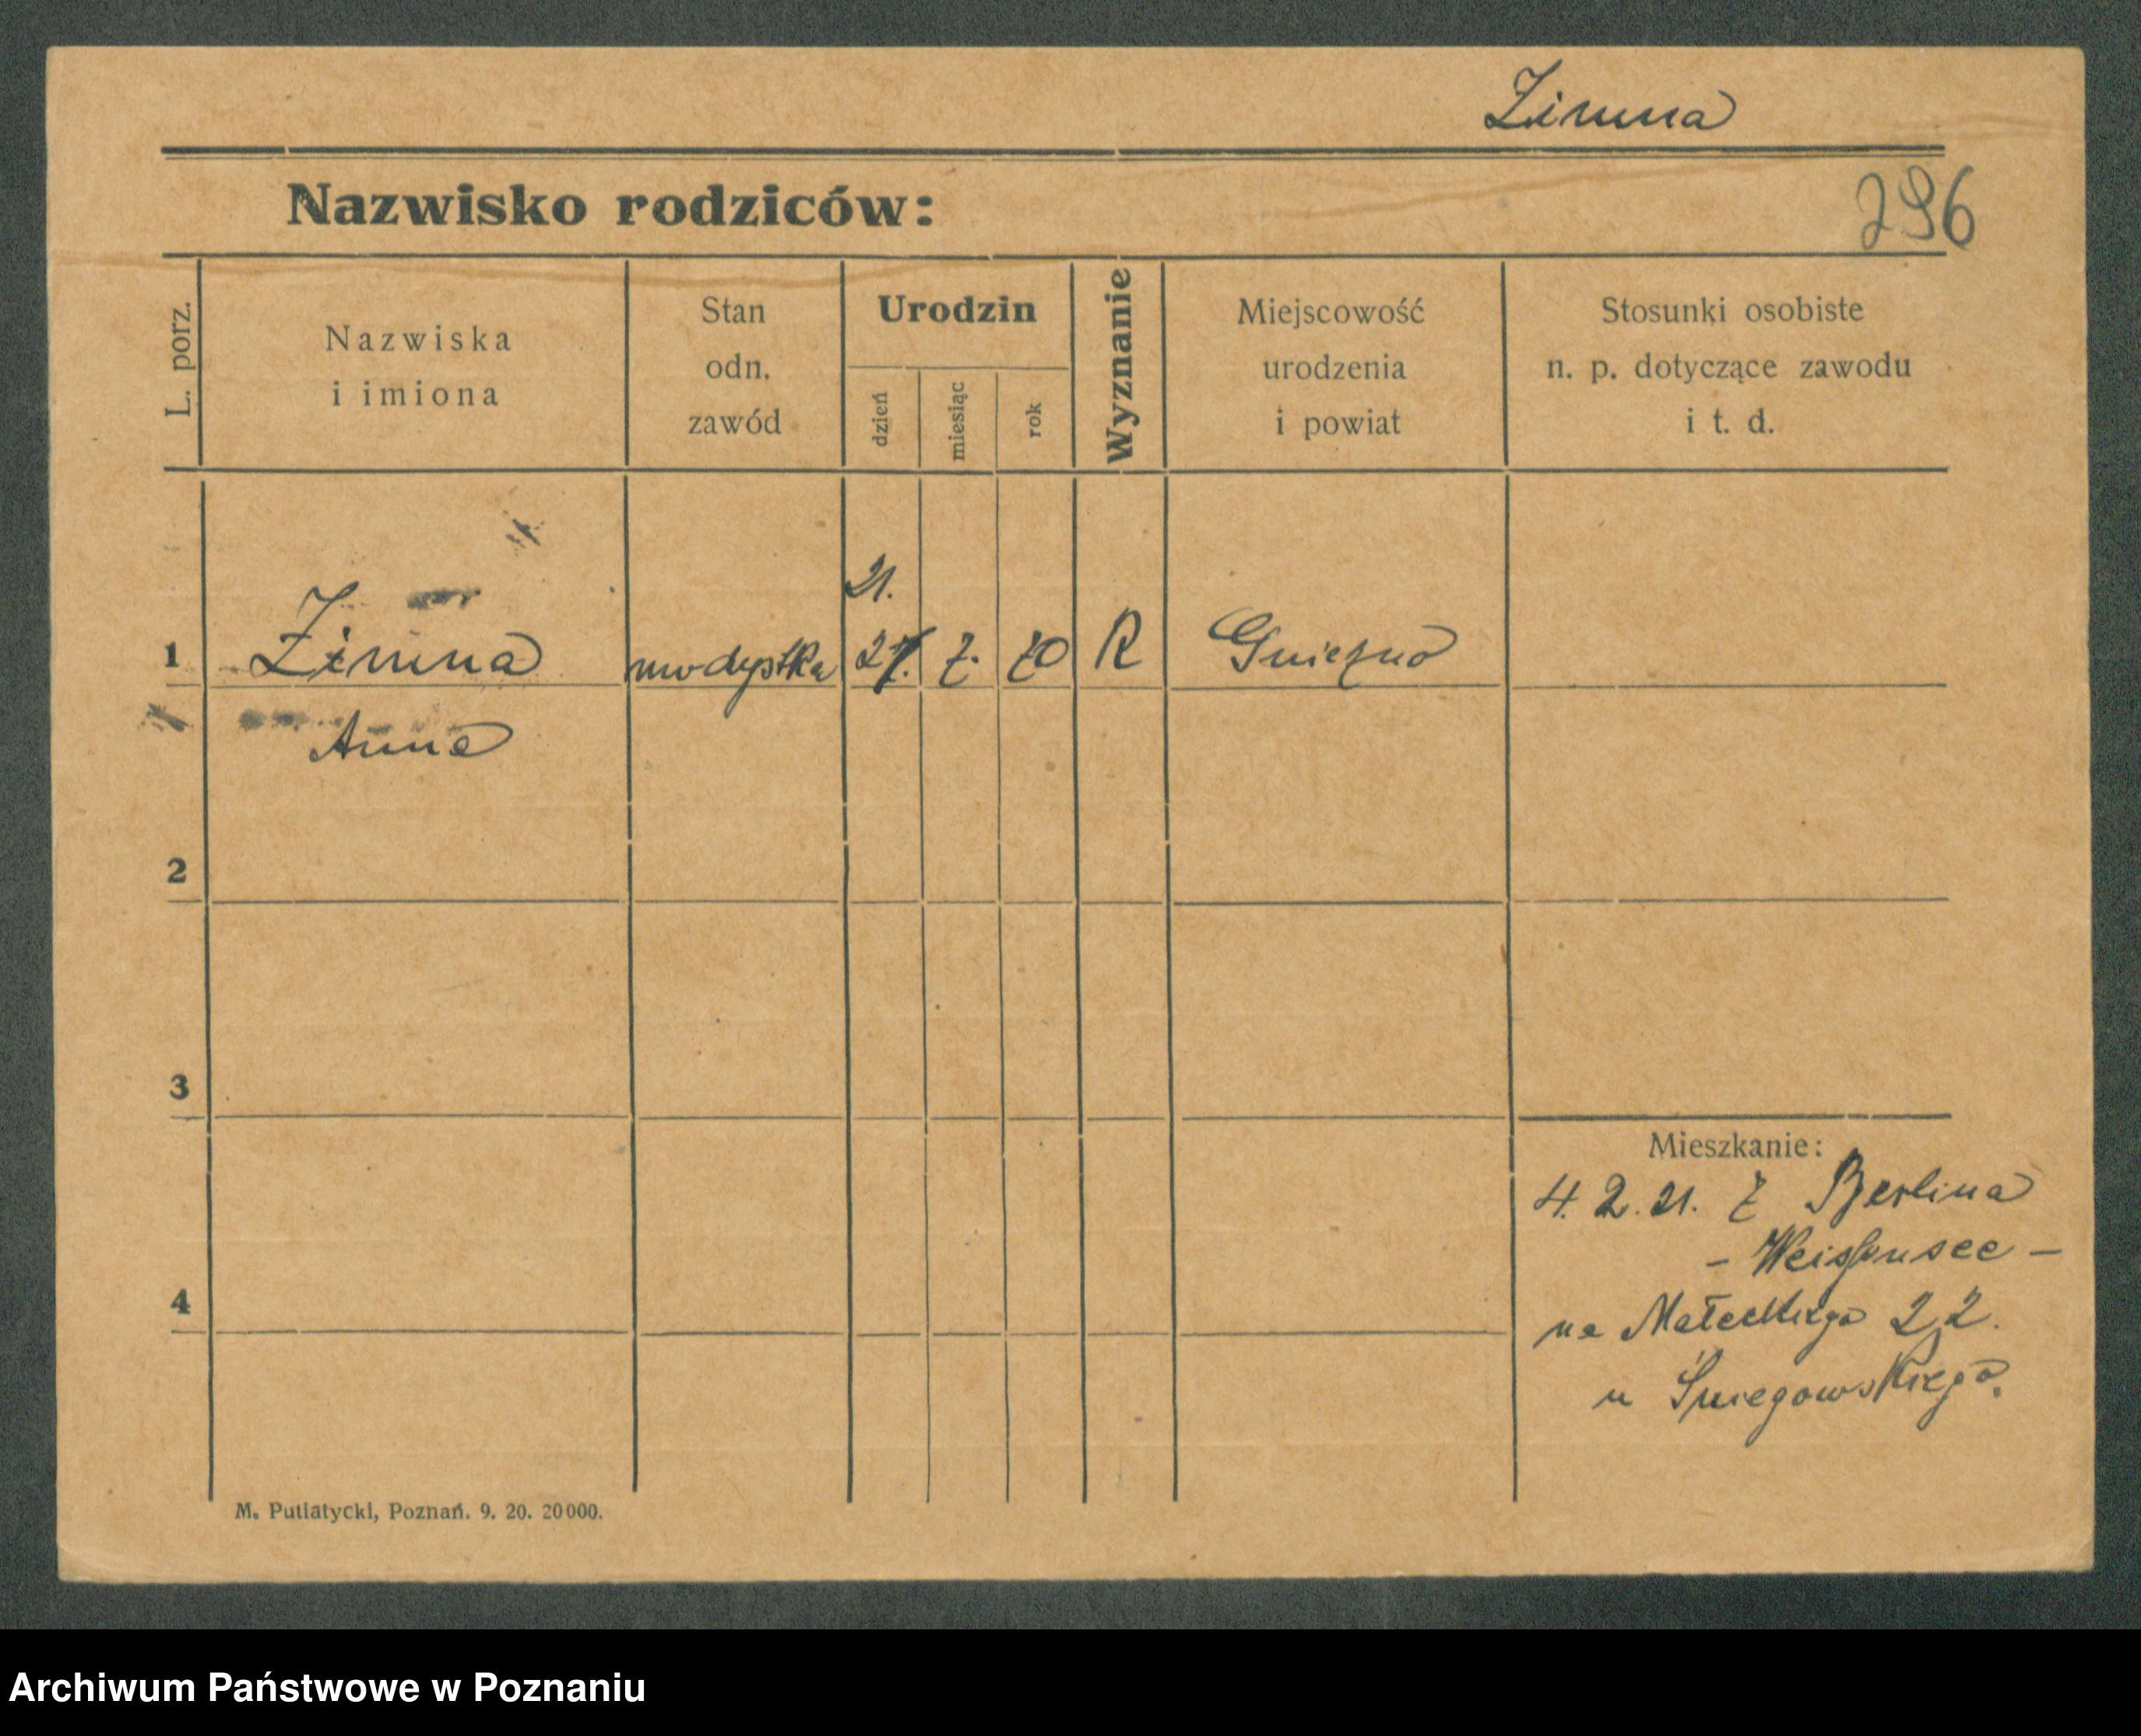 Zimna
Nazwisko rodziców:
296
L. porz.
Nazwiska
i imiona
Stan
odn.
zawód
Urodzin
dzień
miesiąc
rok
Wyznanie
Miejscowość
urodzenia
i powiat
Stosunki osobiste
n. p. dotyczące zawodu
i t. d.
21.
1 Zimna modystka 27. 7. 70 R Gniezno
Anna
2
3
4
Mieszkanie:
4. 2. 21. z Berlina
- Weissensee -
na Małeckiego 22.
u Śniegowskiego.
M. Putiatycki, Poznań. 9. 20. 20000.
Archiwum Państwowe w Poznaniu